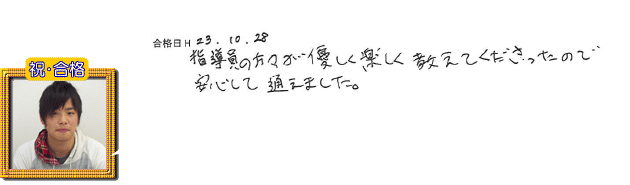 合格日 H 23.10.28
指導員の方々が優しく楽しく教えてくださったので
安心して通えました。
祝・合格